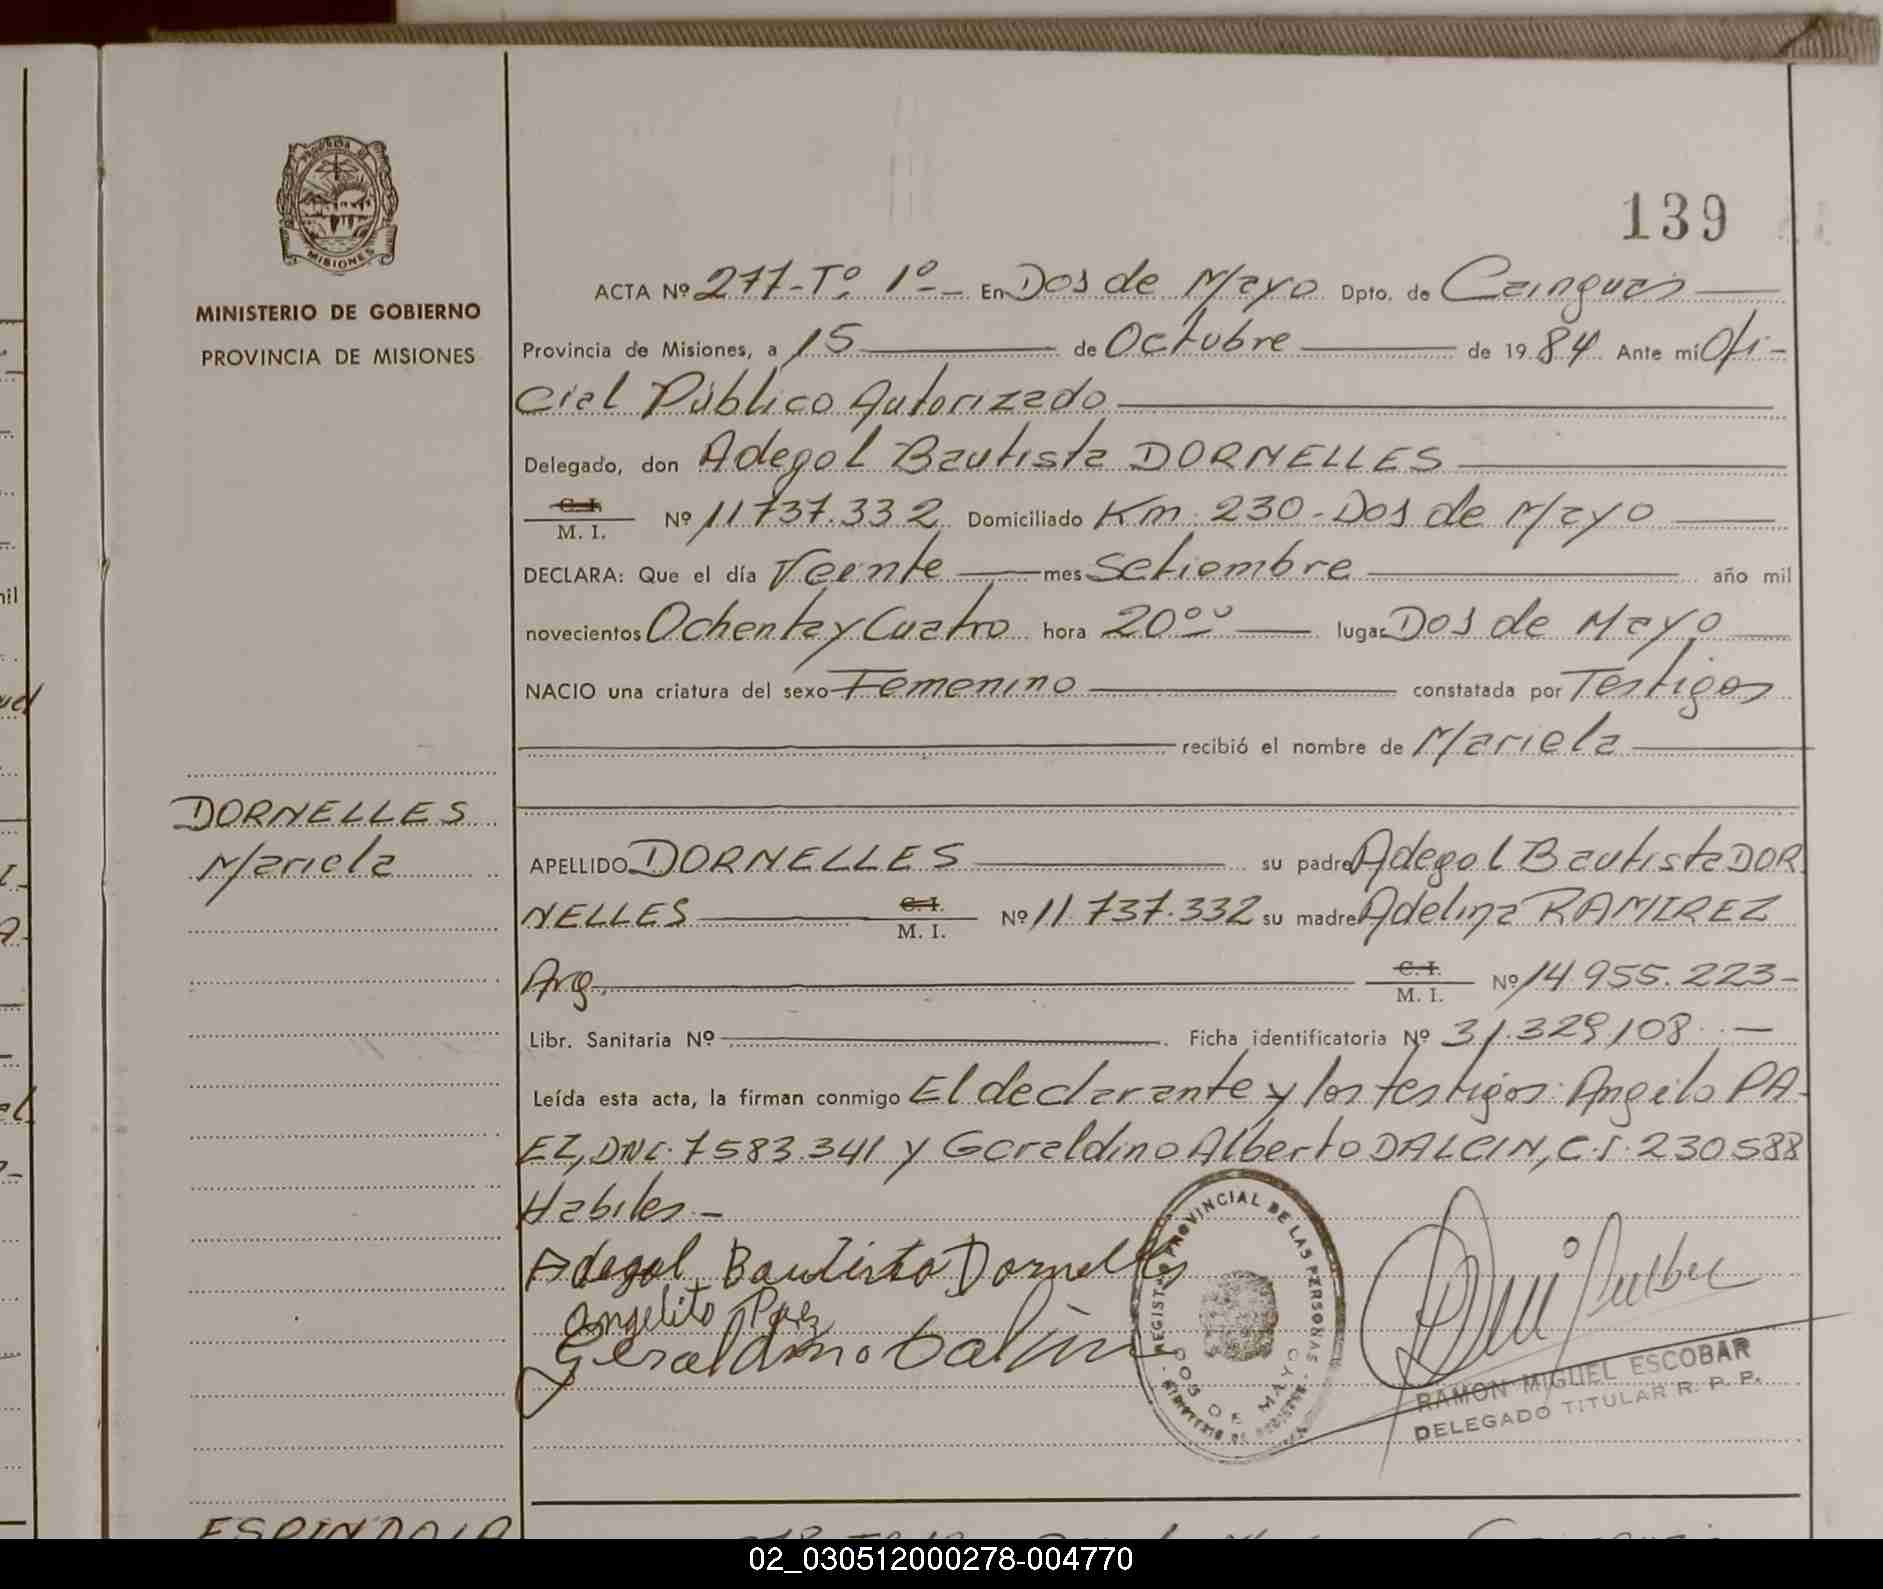 139
MISIONES
MINISTERIO DE GOBIERNO
PROVINCIA DE MISIONES
ACTA Nº 277-Tº 1º- En Dos de Mayo Dpto. de Cainguas
Provincia de Misiones, a 15 de Octubre de 1984 Ante mí Ofi-
cial Público Autorizado
Delegado, don Adegol Bautista DORNELLES
C. I.
M. I. Nº 11737.332 Domiciliado Km. 230-Dos de Mayo
DECLARA: Que el día Veinte mes Setiembre año mil
novecientos Ochenta y Cuatro hora 20ºº lugar Dos de Mayo
NACIO una criatura del sexo Femenino constatada por Testigos
recibió el nombre de Mariela
DORNELLES
Mariela
APELLIDO DORNELLES su padre Adegol Bautista DOR
NELLES C. I. M. I. Nº 11.737.332 su madre Adelina RAMIREZ
Arg. C. I. M. I. Nº 14.955.223-
Libr. Sanitaria Nº Ficha identificatoria Nº 31.329.108
Leída esta acta, la firman conmigo El declarante y los testigos: Angelo PA-
EZ, DNI. 7583.341 y Geraldino Alberto DALCIN, C.I. 230588
Habiles.-
Adegol Bautista Dornelles
Angelito Paez
Geraldino Dalcin
REGISTRO PROVINCIAL DE LAS PERSONAS
DOS DE MAYO
RAMON MIGUEL ESCOBAR
DELEGADO TITULAR R. P. P.
ESPINDOLA
02_030512000278-004770